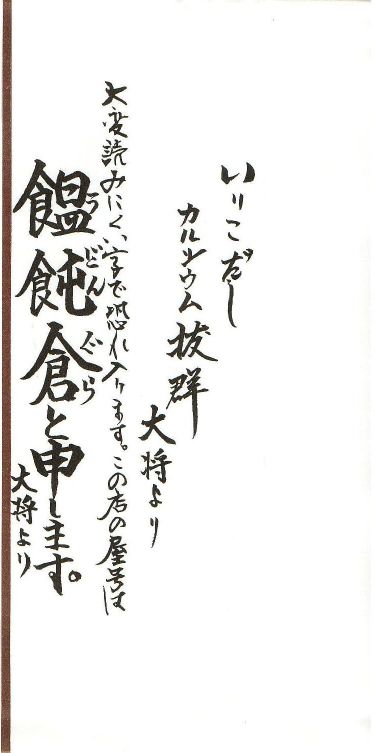 いりこだし
カルシウム抜群
大将より
大変読みにくい字で恐れ入ります。この店の屋号は
饂飩倉と申します。
うどんぐら
大将より